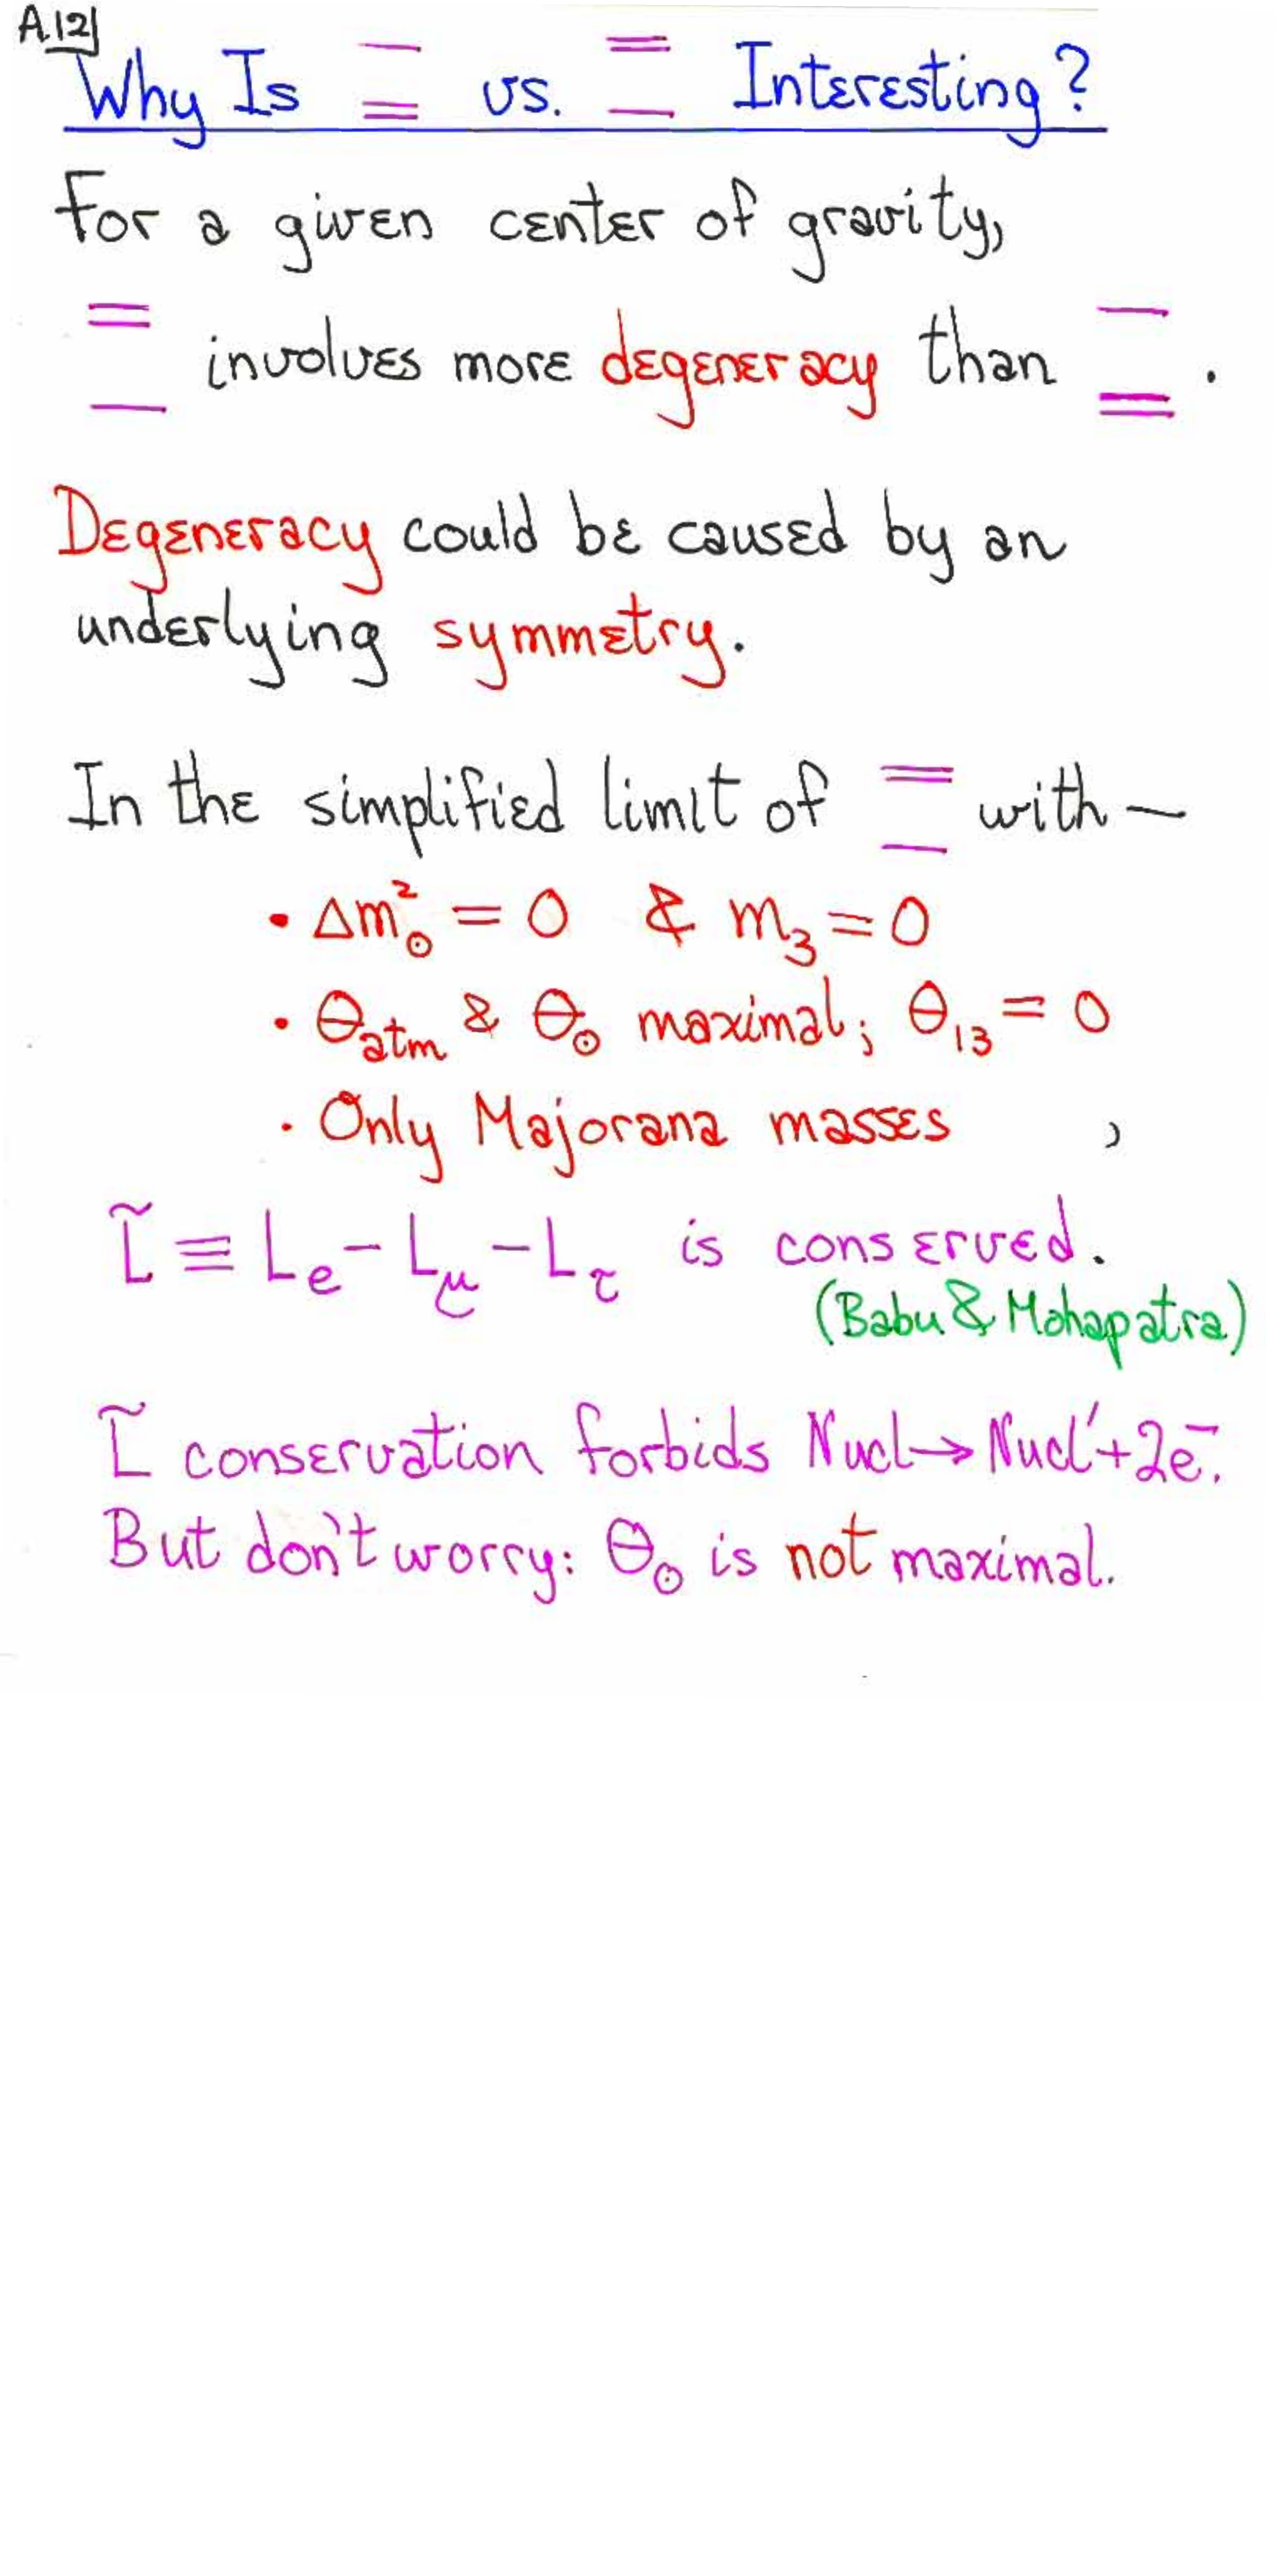 A.12
Why Is vs. Interesting?
For a given center of gravity,
involves more degeneracy than .
Degeneracy could be caused by an
underlying symmetry.
In the simplified limit of with —
• Δm²☉ = 0 & m₃ = 0
• θatm & θ☉ maximal; θ₁₃ = 0
• Only Majorana masses ,
L̃ ≡ Le − Lμ − Lτ is conserved.
(Babu & Mohapatra)
L̃ conservation forbids Nucl → Nucl′ + 2e⁻.
But don't worry: θ☉ is not maximal.